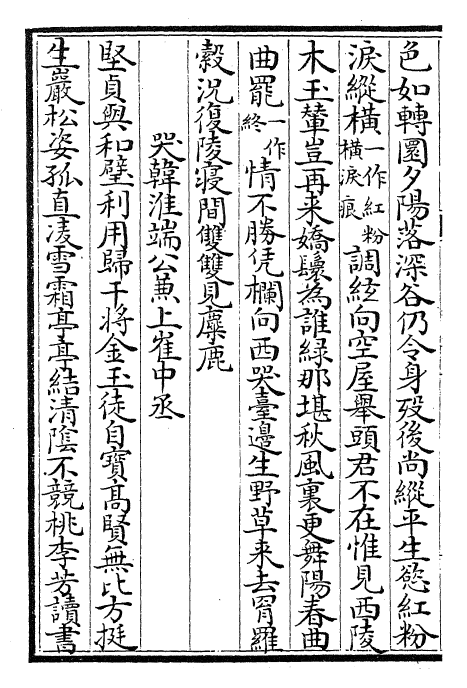 色如轉圜夕陽落深谷仍令身歿後尚縱平生慾紅粉
淚縱横一作紅粉横淚痕調絃向空屋舉頭君不在惟見西陵
木玉輦豈再来嬌鬟為誰緑那堪秋風裏更舞陽春曲
曲罷一作終情不勝凭欄向西哭臺邊生野草来去罥羅
縠況復陵寝間雙雙見麋鹿
哭韓淮端公兼上崔中丞
堅貞與和璧利用歸干将金玉徒自寶髙賢無比方挺
生巖松姿孤直凌雪霜亭亭結清陰不競桃李芳讀書